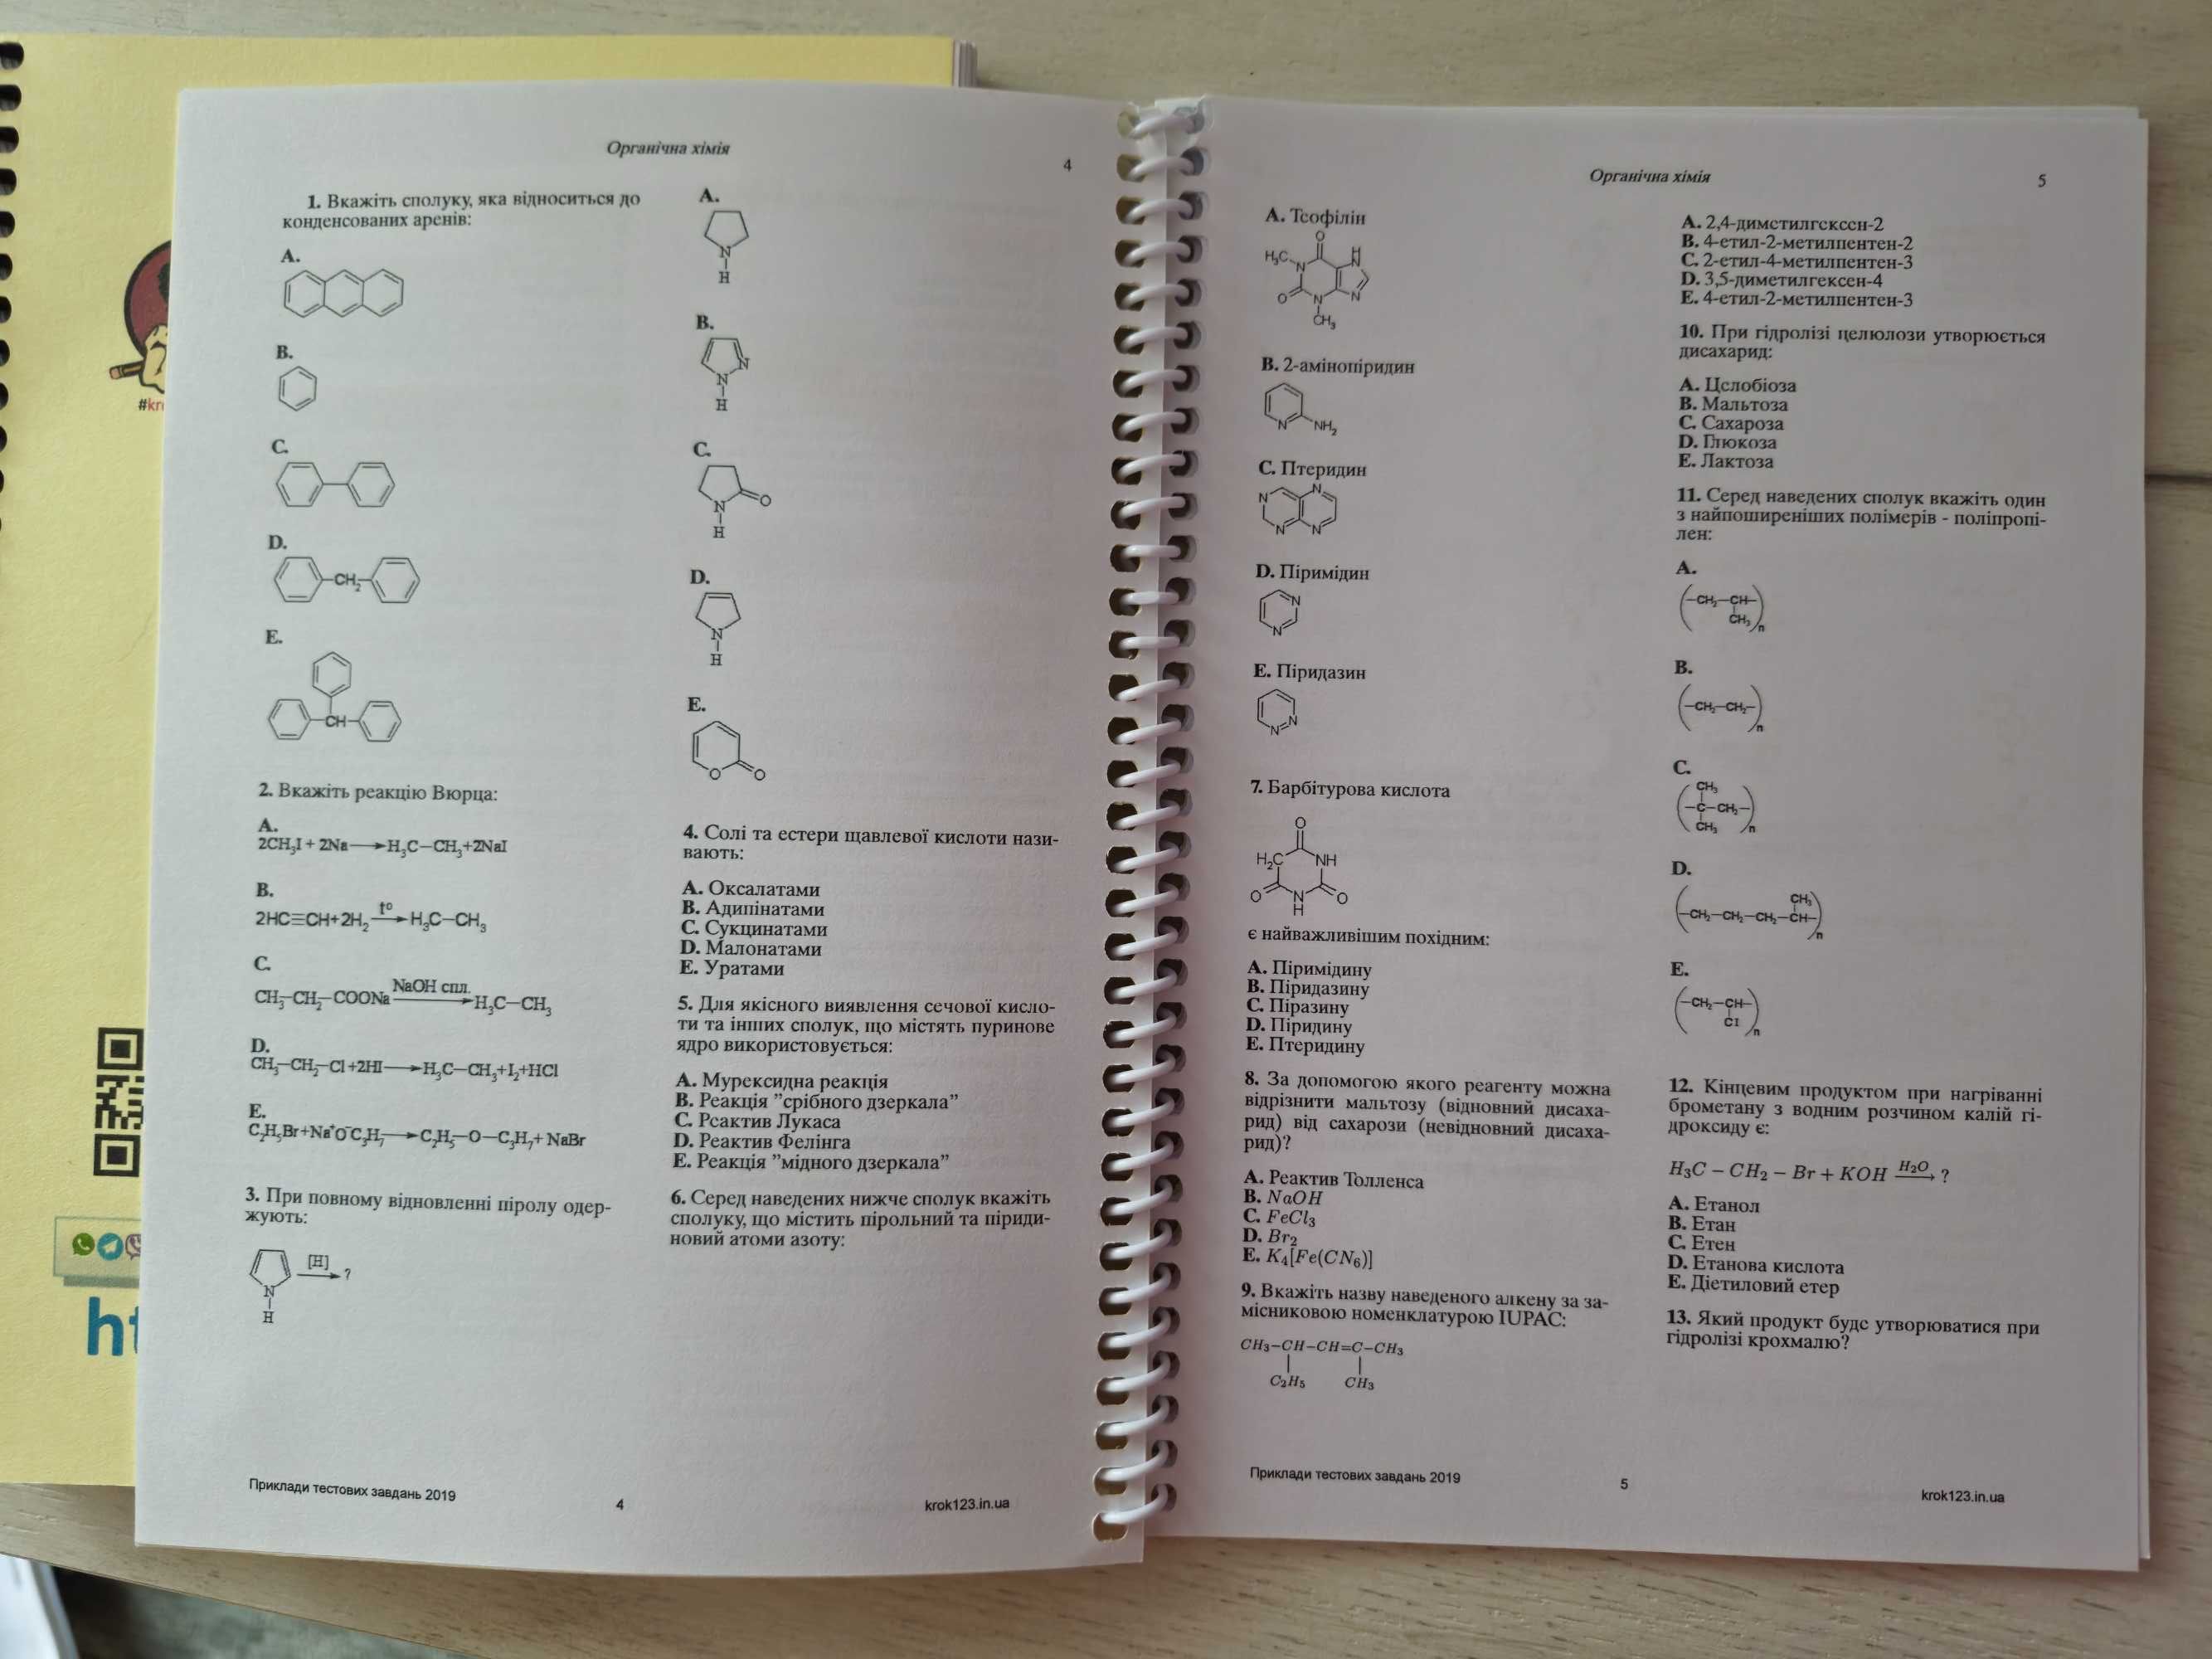 #kr
ht
Органічна хімія
4
1. Вкажіть сполуку, яка відноситься до
конденсованих аренів:
A.
B.
C.
D.
CH₂
E.
CH
2. Вкажіть реакцію Вюрца:
A.
2CH₃I + 2Na⟶H₃C−CH₃+2NaI
B.
2HC≡CH+2H₂ t° ⟶ H₃C−CH₃
C.
CH₃−CH₂−COONa NaOH спл. ⟶ H₃C−CH₃
D.
CH₃−CH₂−Cl+2HI⟶H₃C−CH₃+I₂+HCl
E.
C₂H₅Br+Na⁺O⁻C₃H₇⟶C₂H₅−O−C₃H₇+ NaBr
3. При повному відновленні піролу одер-
жують:
[H] ⟶ ?
N
H
A.
N
H
B.
N
N
H
C.
N
O
H
D.
N
H
E.
O
O
4. Солі та естери щавлевої кислоти нази-
вають:
A. Оксалатами
B. Адипінатами
C. Сукцинатами
D. Малонатами
E. Уратами
5. Для якісного виявлення сечової кисло-
ти та інших сполук, що містять пуринове
ядро використовується:
A. Мурексидна реакція
B. Реакція ”срібного дзеркала”
C. Реактив Лукаса
D. Реактив Фелінга
E. Реакція ”мідного дзеркала”
6. Серед наведених нижче сполук вкажіть
сполуку, що містить пірольний та піриди-
новий атоми азоту:
Приклади тестових завдань 2019
4
krok123.in.ua
Органічна хімія
5
A. Теофілін
O
H₃C
N
H
N
O
N
N
CH₃
B. 2-амінопіридин
N
NH₂
C. Птеридин
N
N
N
N
D. Піримідин
N
N
E. Піридазин
N
N
7. Барбітурова кислота
O
H₂C
NH
O
N
H
O
є найважливішим похідним:
A. Піримідину
B. Піридазину
C. Піразину
D. Піридину
E. Птеридину
8. За допомогою якого реагенту можна
відрізнити мальтозу (відновний дисаха-
рид) від сахарози (невідновний дисаха-
рид)?
A. Реактив Толленса
B. NaOH
C. FeCl₃
D. Br₂
E. K₄[Fe(CN₆)]
9. Вкажіть назву наведеного алкену за за-
місниковою номенклатурою IUPAC:
CH₃−CH−CH=C−CH₃
C₂H₅ CH₃
A. 2,4-диметилгексен-2
B. 4-етил-2-метилпентен-2
C. 2-етил-4-метилпентен-3
D. 3,5-диметилгексен-4
E. 4-етил-2-метилпентен-3
10. При гідролізі целюлози утворюється
дисахарид:
A. Целобіоза
B. Мальтоза
C. Сахароза
D. Глюкоза
E. Лактоза
11. Серед наведених сполук вкажіть один
з найпоширеніших полімерів - поліпропі-
лен:
A.
(−CH₂−CH−)n
CH₃
B.
(−CH₂−CH₂−)n
C.
CH₃
(−C−CH₂−)n
CH₃
D.
CH₃
(−CH₂−CH₂−CH₂−CH−)n
E.
(−CH₂−CH−)n
Cl
12. Кінцевим продуктом при нагріванні
брометану з водним розчином калій гі-
дроксиду є:
H₃C − CH₂ − Br + KOH H₂O ⟶ ?
A. Етанол
B. Етан
C. Етен
D. Етанова кислота
E. Діетиловий етер
13. Який продукт буде утворюватися при
гідролізі крохмалю?
Приклади тестових завдань 2019
5
krok123.in.ua